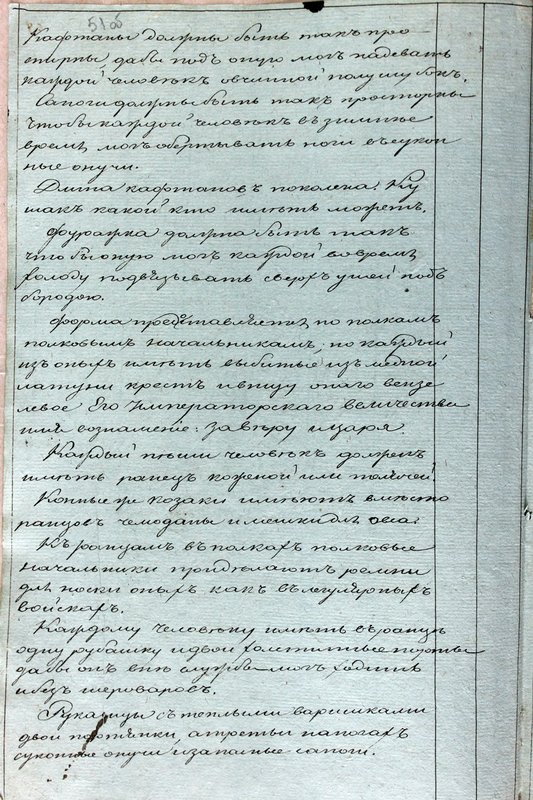 51 об
Кафтаны должны быть такъ про
сторны, дабы подъ оную могъ надевать
каждой человѣкъ овчинной полушубокъ.
Сапоги должны быть такъ просторны
чтобы каждой человѣкъ въ зимнѣе
время, могъ обертывать ноги въ сукон
ные онучи.
Длина кафтановъ поколена. Ку
шакъ какой кто имѣть можетъ.
фуражка должна быть такъ
что бы оную могъ каждой во время
холоду подвязывать сверхъ ушей подъ
бородою.
форма представляется по полкамъ
полковымъ начальникамъ; но каждый
изъ оныхъ имѣть выбитые изъ медной
латуни крестъ и внизу онаго вензе
левое Его Императорскаго величества
имя сознамение: за вѣру и царя.
Каждый пѣшии человѣкъ должен
имѣть ранецъ кожаной или
Конные же козаки имѣютъ вмѣсто
ранцовъ чемоданы и мешки для овса.
Къ ранцамъ въ полкахъ полковые
начальники придѣлаютъ ремни
для носки оныхъ какъ въ легулярныхъ
войскахъ.
Каждому человѣку имѣть въ ранцѣ
одну рубашку и двои холстинные порты
дабы онъ внѣ службы могъ ходить
и безъ шероваровъ.
Рукавицы съ теплыми варишками
двои портянки, а третьи на ногахъ
суконные онучи и запасные сапоги.